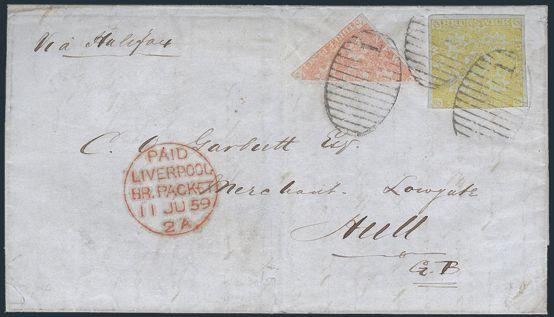 Via Halifax
BRUNSWICK
1
1
C. O. Garbutt Esq
Merchant. Lowgate
Hull
G. B
PAID
LIVERPOOL
BR. PACKET
11 JU 59
2A